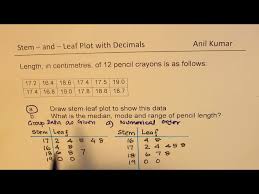 Stem – and – Leaf Plot with Decimals Anil Kumar
Length, in centimetres, of 12 pencil crayons is as follows:
17.2 16.4 18.6 17.4 17.5 19.0
17.4 16.8 18.8 18.7 17.8 19.0
a Draw stem-leaf plot to show this data
b What is the median, mode and range of pencil length?
Group Data as Given or Numerical order
Stem Leaf Stem Leaf
17 2 4 5 4 8 16 4 8
16 4 8 17
18 6 8 7 18
19 0 0 19 0 0